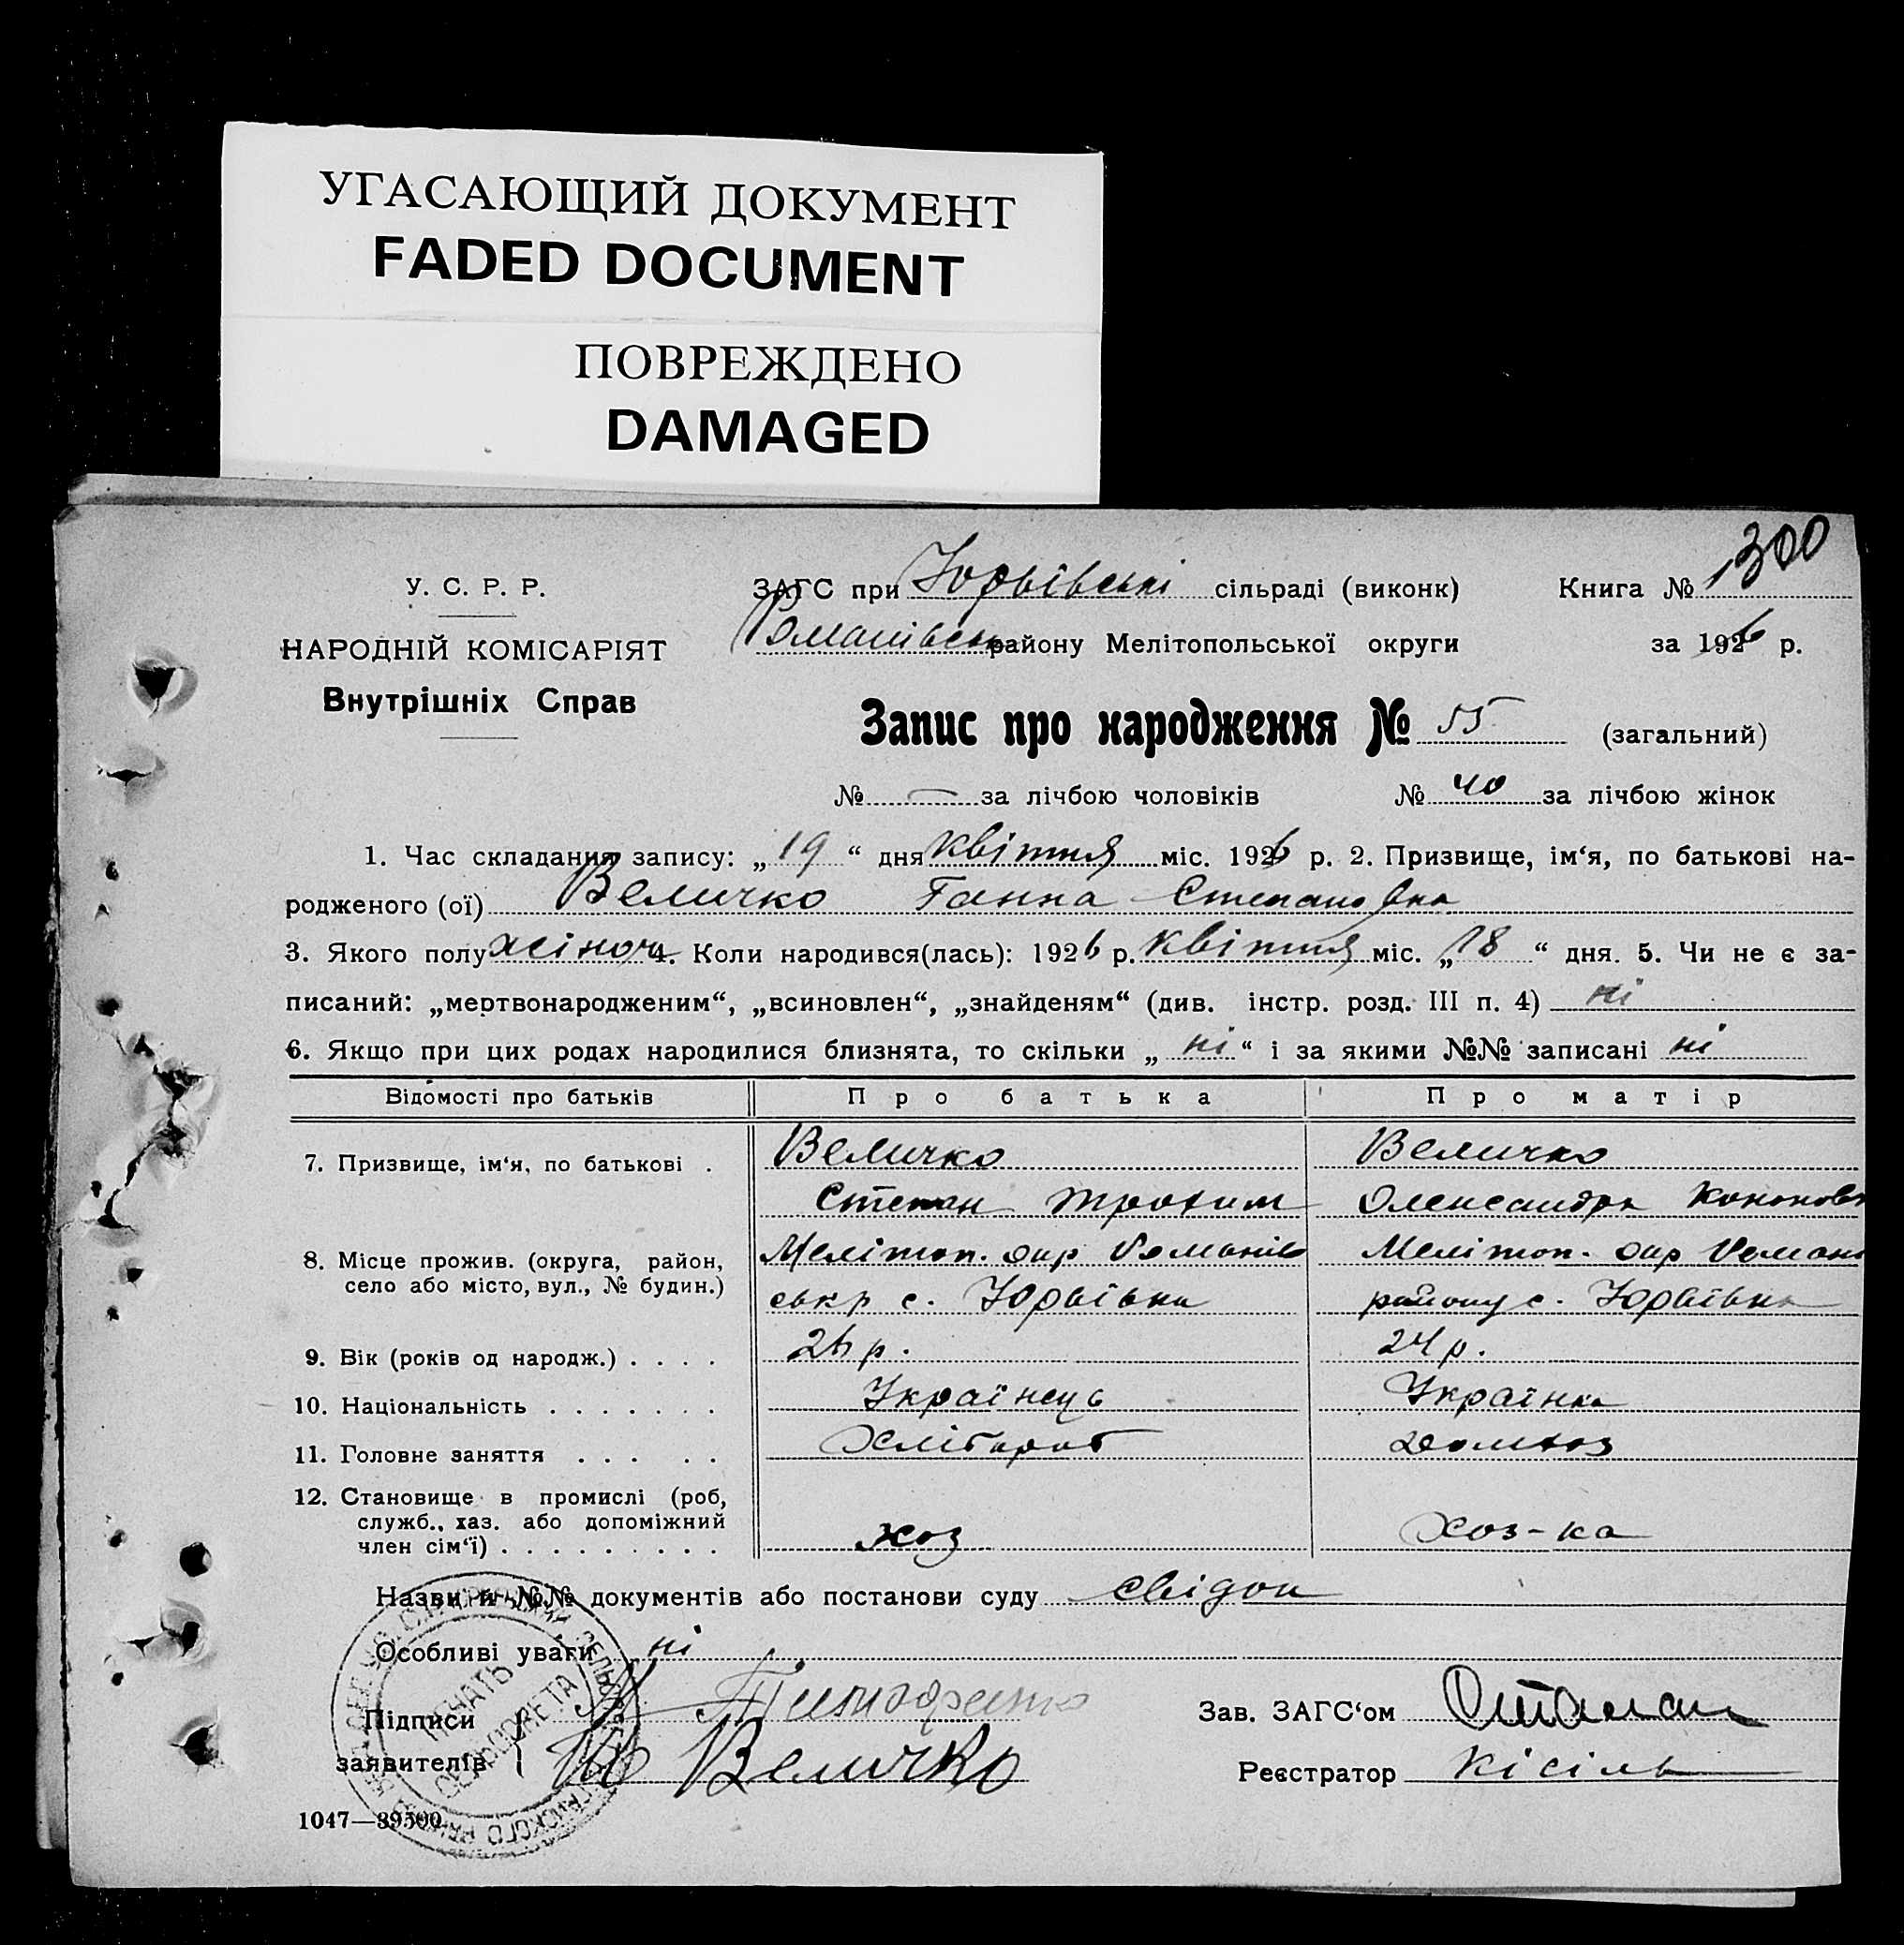 УГАСАЮЩИЙ ДОКУМЕНТ
FADED DOCUMENT
ПОВРЕЖДЕНО
DAMAGED
300
У. С. Р. Р.
ЗАГС при Юрьївські сільраді (виконк) Книга №
НАРОДНІЙ КОМІСАРІЯТ
Романівськ району Мелітопольської округи за 1926 р.
Внутрішніх Справ
Запис про народження № 55 (загальний)
№ — за лічбою чоловіків № 40 за лічбою жінок
1. Час складання запису: „19“ дня квітня міс. 1926 р. 2. Призвище, ім‘я, по батькові на-
родженого (ої) Величко Ганна Степановна
3. Якого полу жіноч 4. Коли народився(лась): 1926 р. квітня міс. „18“ дня. 5. Чи не є за-
писаний: „мертвонародженим“, „всиновлен“, „знайденям“ (див. інстр. розд. III п. 4) ні
6. Якщо при цих родах народилися близнята, то скільки „ні“ і за якими №№ записані ні
Відомості про батьків Про батька Про матір
7. Призвище, ім‘я, по батькові . Величко Величко
Степан Трохим Олександра Кононовн
8. Місце прожив. (округа, район, Мелітоп. окр Романів Мелітоп. окр Романі
село або місто, вул., № будин.) ськр с. Юрьївка району с. Юрьївка
9. Вік (років од народж.) . . . . 26 р. 24 р.
10. Національність . . . . . . . Українець Українка
11. Головне заняття . . . . . Хлібороб домхоз
12. Становище в промислі (роб,
служб., хаз. або допоміжний хоз хоз-ка
член сім‘ї) . . . . . . . . .
Назви й №№ документів або постанови суду свідок
Особливі уваги ні
Підписи Зав. ЗАГС‘ом Отаман
заявителів Величко Реєстратор Кісіль
1047—39500
ПЕЧАТЬ
СЕЛЬСОВЕТА